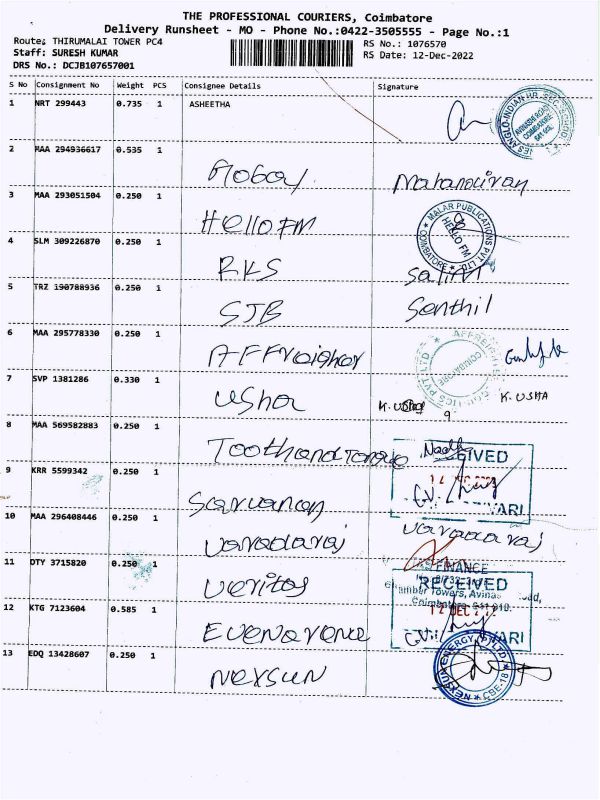 THE PROFESSIONAL COURIERS, Coimbatore
Delivery Runsheet - MO - Phone No.:0422-3505555 - Page No.:1
Route: THIRUMALAI TOWER PC4
RS No.: 1076570
Staff: SURESH KUMAR
RS Date: 12-Dec-2022
DRS No.: DCJB107657001
S No Consignment No Weight PCS Consignee Details Signature
1 NRT 299443 0.735 1 ASHEETHA
ANGLO-INDIAN HR. SEC. SCHOOL
COIMBATORE
2 MAA 294936617 0.535 1
3 MAA 293051504 0.250 1 Hello FM
MALAR PUBLICATIONS PVT LTD
HELLO FM
COIMBATORE
4 SLM 309226870 0.250 1 RKS
5 TRZ 190788936 0.250 1 SJB Senthil
6 MAA 295778330 0.250 1
COIMBATORE
7 SVP 1381286 0.330 1 Usha K. USHA K. USHA
9
8 MAA 569582883 0.250 1 Toothandtongue
RECEIVED
9 KRR 5599342 0.250 1 Sarvanan
10 MAA 296408446 0.250 1 Varadaraj Varadaraj
11 DTY 3715820 0.250 1 Veritas
FINANCE
RECEIVED
Chamber Towers,
Coimbatore
12 DEC
12 KTG 7123604 0.585 1
13 EDQ 13428607 0.250 1 NEXSUN
NEXSUN ENERGY (P) LTD
CBE-18